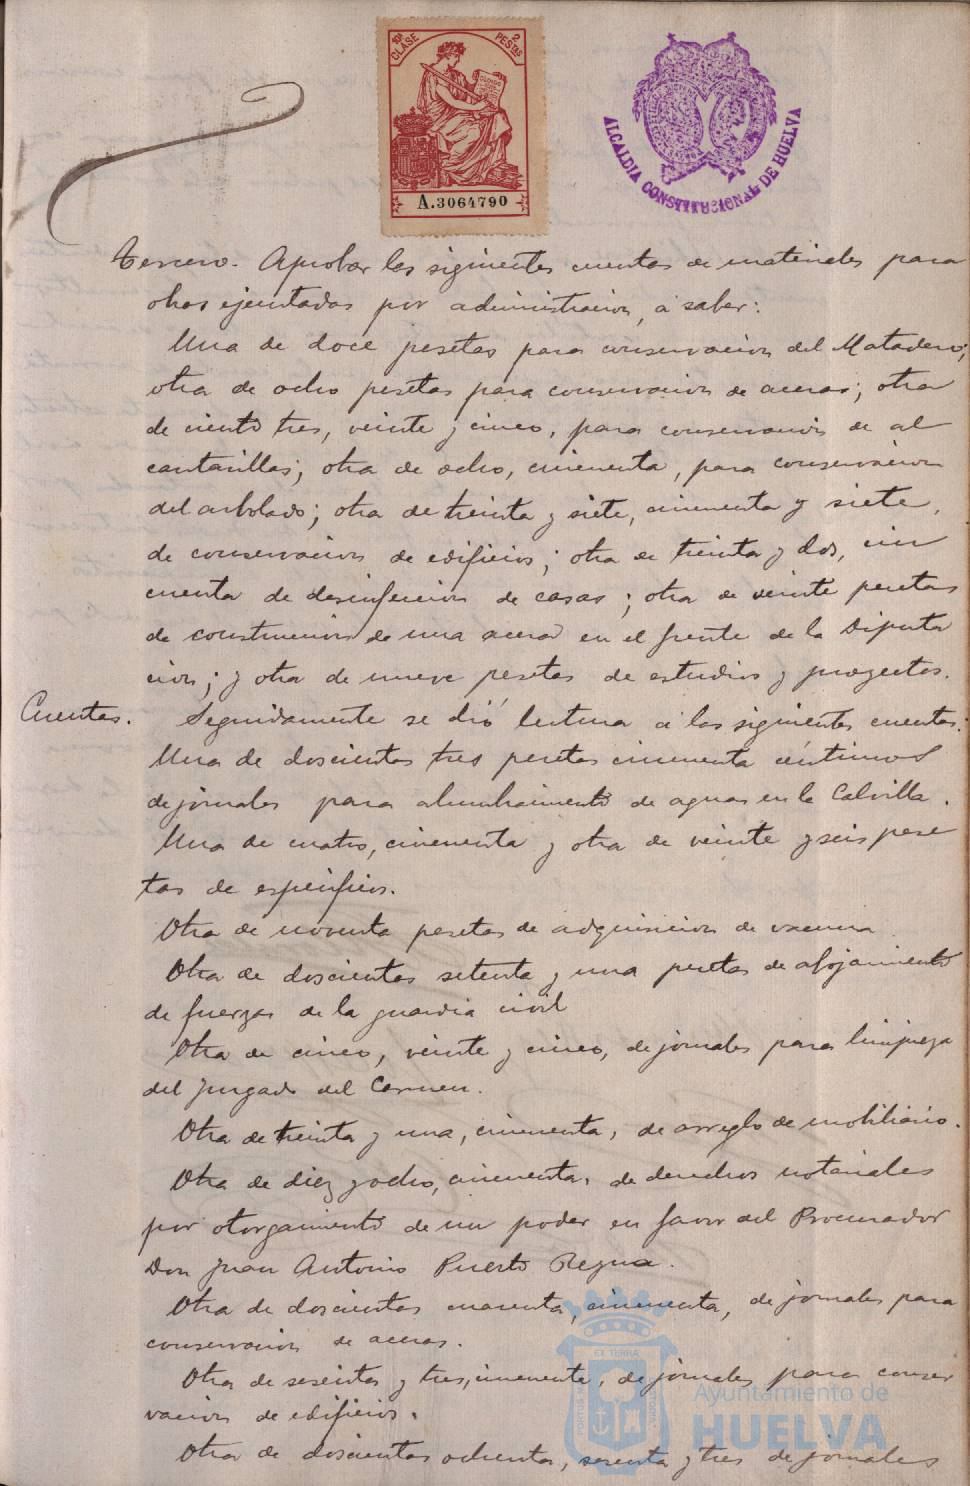 10ª CLASE
2 PESETAS
A.3064790
ALCALDIA CONSTITUCIONAL DE HUELVA
Tercero. Aprobar las siguientes cuentas de materiales para
obras ejecutadas por administracion, a saber:
Una de doce pesetas para conservacion del Matadero;
otra de ocho pesetas para conservacion de aceras; otra
de ciento tres, veinte y cinco, para conservacion de al
cantarillas; otra de ocho, cincuenta, para conservacion
del arbolado; otra de treinta y siete, cincuenta y siete,
de conservacion de edificios; otra de treinta y dos, cin
cuenta de desinfeccion de casas; otra de veinte pesetas
de construccion de una acera en el frente de la Diputa
cion; y otra de nueve pesetas de estudios y proyectos.
Cuentas. Seguidamente se dió lectura a las siguientes cuentas:
Una de doscientas tres pesetas cincuenta céntimos
de jornales para alumbramiento de aguas en la Calvilla.
Una de cuatro, cincuenta y otra de veinte y seis pese
tas de especificos.
Otra de noventa pesetas de adquisicion de vacuna
Otra de doscientas setenta y una pesetas de alojamiento
de fuerzas de la guardia civil
Otra de cinco, veinte y cinco, de jornales para limpieza
del Juzgado del Carmen.
Otra de treinta y una, cincuenta, de arreglo de mobiliario.
Otra de diez y ocho, cincuenta, de derechos notariales
por otorgamiento de un poder en favor del Procurador
Don Juan Antonio Puerto Regna.
Otra de doscientas cuarenta, cincuenta, de jornales para
conservacion de aceras.
Otra de sesenta y tres, cincuenta, de jornales para conser
vacion de edificios.
Otra de doscientas ochenta, sesenta y tres de jornales
Ayuntamiento de
HUELVA